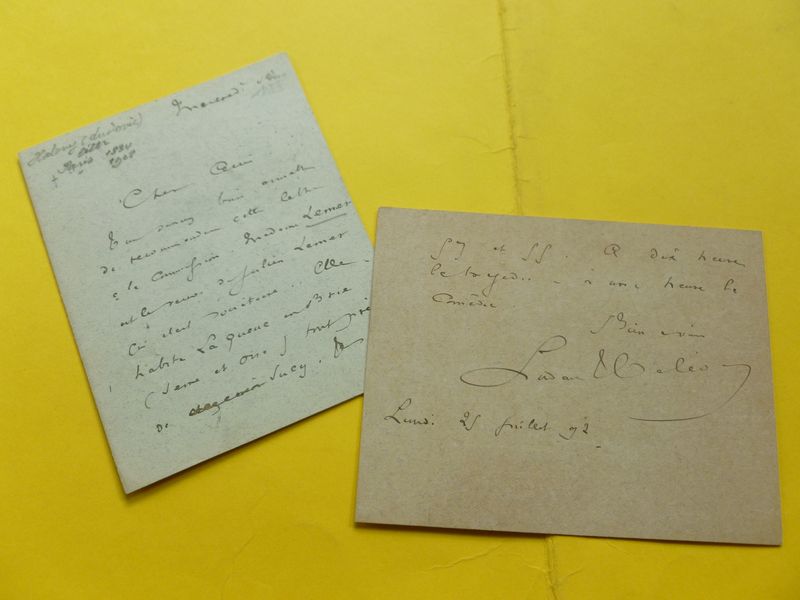 Halévy (Ludovic)
Paris 1834
1908
Mercredi
Cher Ami
bien
de recommander cette lettre
à la Commission. Madame Lemer
est la veuve de Julien Lemer
Elle
habite La Queue en Brie
(Seine et Oise) tout près
de Sucy.
et 55. A dix heures
la tragédie – à une heure la
Comédie
Bien à vous
Ludovic Halévy
Lundi 25 Juillet 92